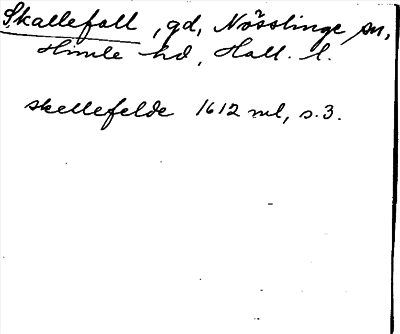 Skallefall, gd, Nösslinge sn,
Himle hd, Hall. l.
skellefelde 1612 ml, s.3.